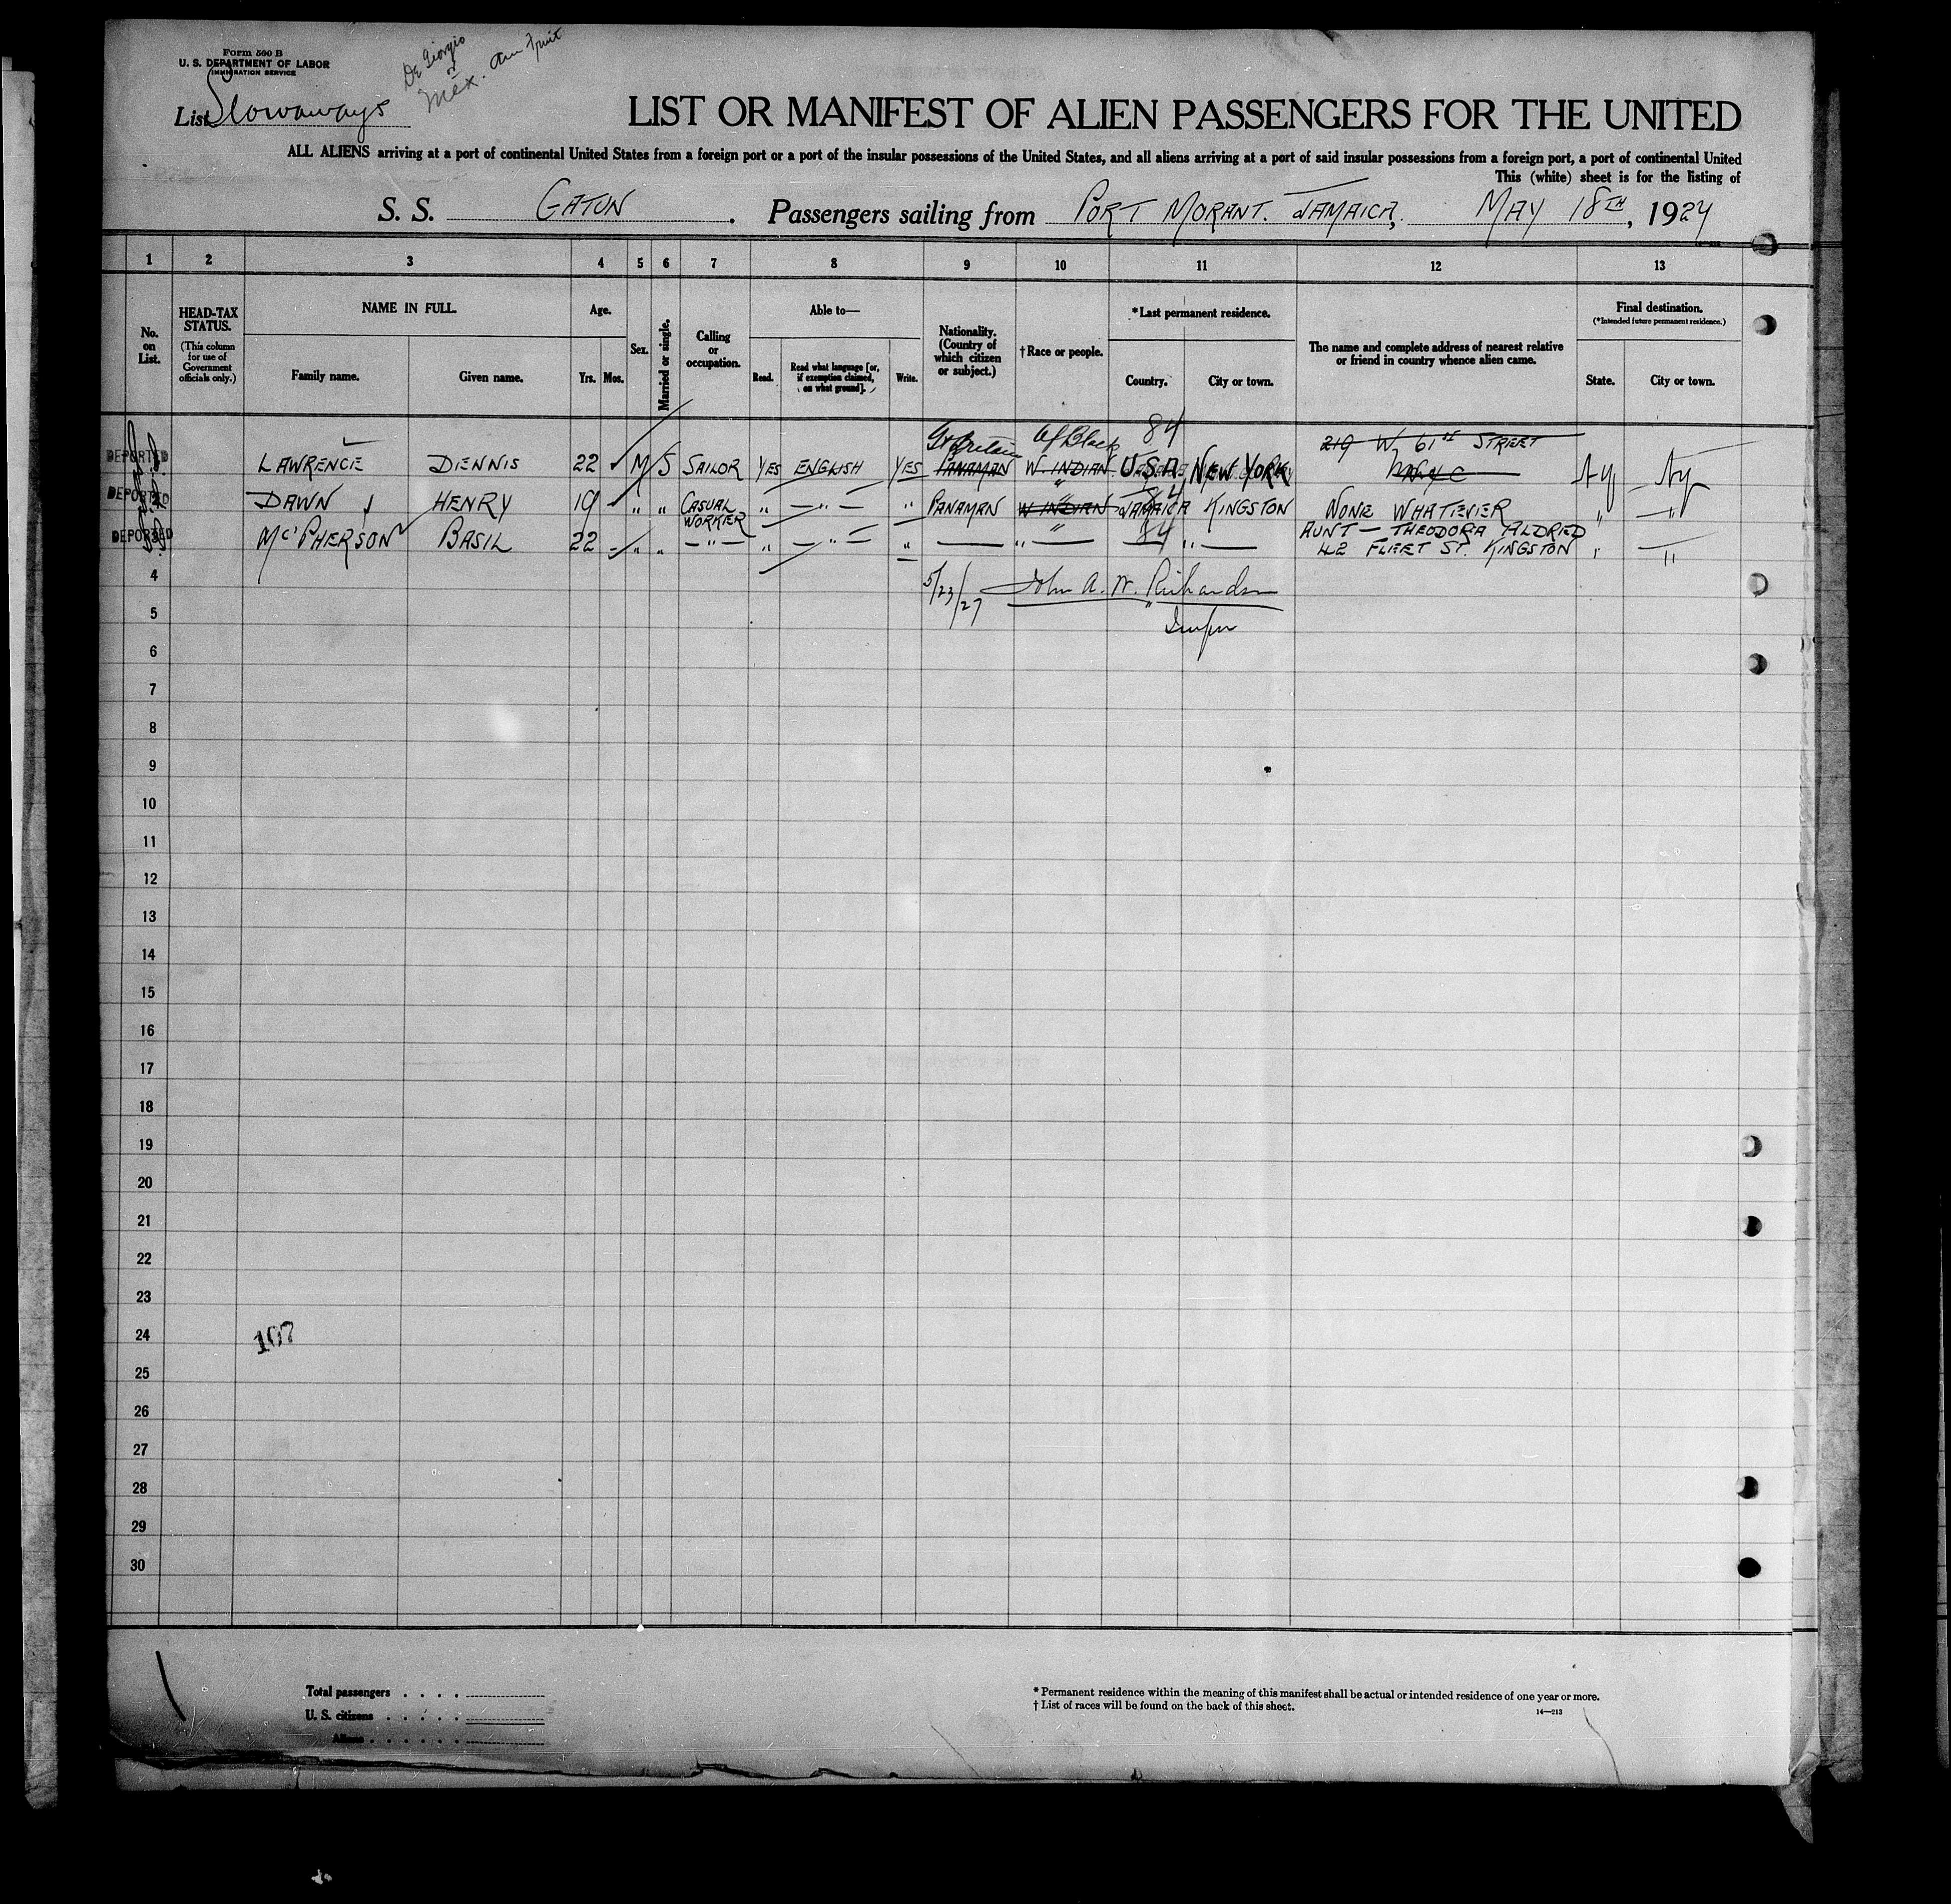 Form 500 B
U. S. DEPARTMENT OF LABOR
IMMIGRATION SERVICE
De Giorgio
or
Mex. Am Fruit
List Stowaways
LIST OR MANIFEST OF ALIEN PASSENGERS FOR THE UNITED
ALL ALIENS arriving at a port of continental United States from a foreign port or a port of the insular possessions of the United States, and all aliens arriving at a port of said insular possessions from a foreign port, a port of continental United
This (white) sheet is for the listing of
S. S. GATUN. Passengers sailing from PORT MORANT. JAMAICA, MAY 18TH, 1927
1 2 3 4 5 6 7 8 9 10 11 12 13
No. on List.
HEAD-TAX STATUS.
(This column for use of Government officials only.)
NAME IN FULL.
Family name. Given name.
Age.
Yrs. Mos.
Sex.
Married or single.
Calling or occupation.
Able to—
Read. Read what language [or, if exemption claimed, on what ground]. Write.
Nationality. (Country of which citizen or subject.)
† Race or people.
* Last permanent residence.
Country. City or town.
The name and complete address of nearest relative or friend in country whence alien came.
Final destination.
(* Intended future permanent residence.)
State. City or town.
Gt Britain Af Black 84 219 W. 61ST STREET
DEPORTED LAWRENCE DENNIS 22 M S SAILOR YES ENGLISH YES PANAMAN W. INDIAN U.S.A. NEW YORK NYC NY NY
DEPORTED DAWN HENRY 19 " " CASUAL WORKER " — " — " PANAMAN W INDIAN JAMAICA KINGSTON NONE WHATEVER " — " —
84 AUNT — THEODORA ALDRED
DEPORTED McPHERSON BASIL 22 " " — " — " — " — " — " — — " — 42 FLEET ST. KINGSTON " — " —
4
5/23/27 John A. W. Richardson
5
6
7
8
9
10
11
12
13
14
15
16
17
18
19
20
21
22
23
24 107
25
26
27
28
29
30
Total passengers . . . .
U. S. citizens . . . . .
Aliens . . . . . .
* Permanent residence within the meaning of this manifest shall be actual or intended residence of one year or more.
† List of races will be found on the back of this sheet.
14—213